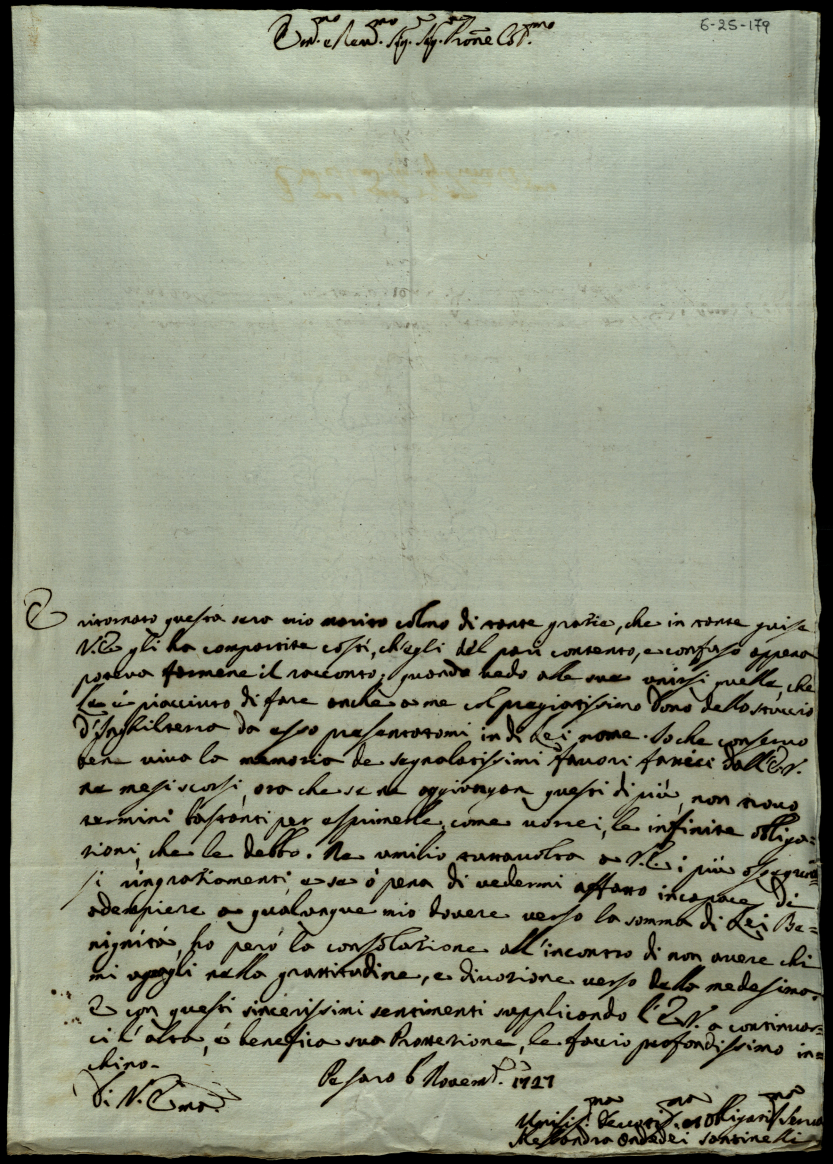 Em.mo e Rev.mo Sig.r Sig.r Pron̄e Col.mo
6-25-179
E ritornato questa sera mio marito colmo di tante grazie, che in tante guise
V.E. gli ha compartite costì, ch'egli del pari contento, e confuso appena
poteva farmene il racconto; quando vedo alle sue unirsi quella, che
Le è piacciuto di fare anche a me col pregiatissimo dono dello stuccio
d'Inghilterra da esso presentatomi in di Lei nome. Io che conservo
ben viva la memoria de segnalatissimi favori fattici dall'E.V.
ne mesi scorsi, ora che se ne aggiungon questi di più, non trovo
termini bastanti per esprimerle, come vorrei, le infinite obliga-
zioni, che le debbo. Ne umilio tuttavolta a V.E. i più ossequio-
si ringraziamenti, e se ò pena di vedermi affatto incapace di
adempiere a qualunque mio dovere verso la somma di Lei Be-
nignità, ho però la consolazione all'incontro di non avere chi
mi agguagli nella grattitudine, e divozione verso della medesima.
E con questi sincerissimi sentimenti supplicando l'E.V. a continuar-
ci l'alta, e benefica sua Protezione, le faccio profondissimo in-
chino.
Pesaro 6 Novem.e 1727
Di V. Em.a
Umilis.ma Devotis.ma et Obligatis.ma Serva
Alessandra Ondedei Santinelli